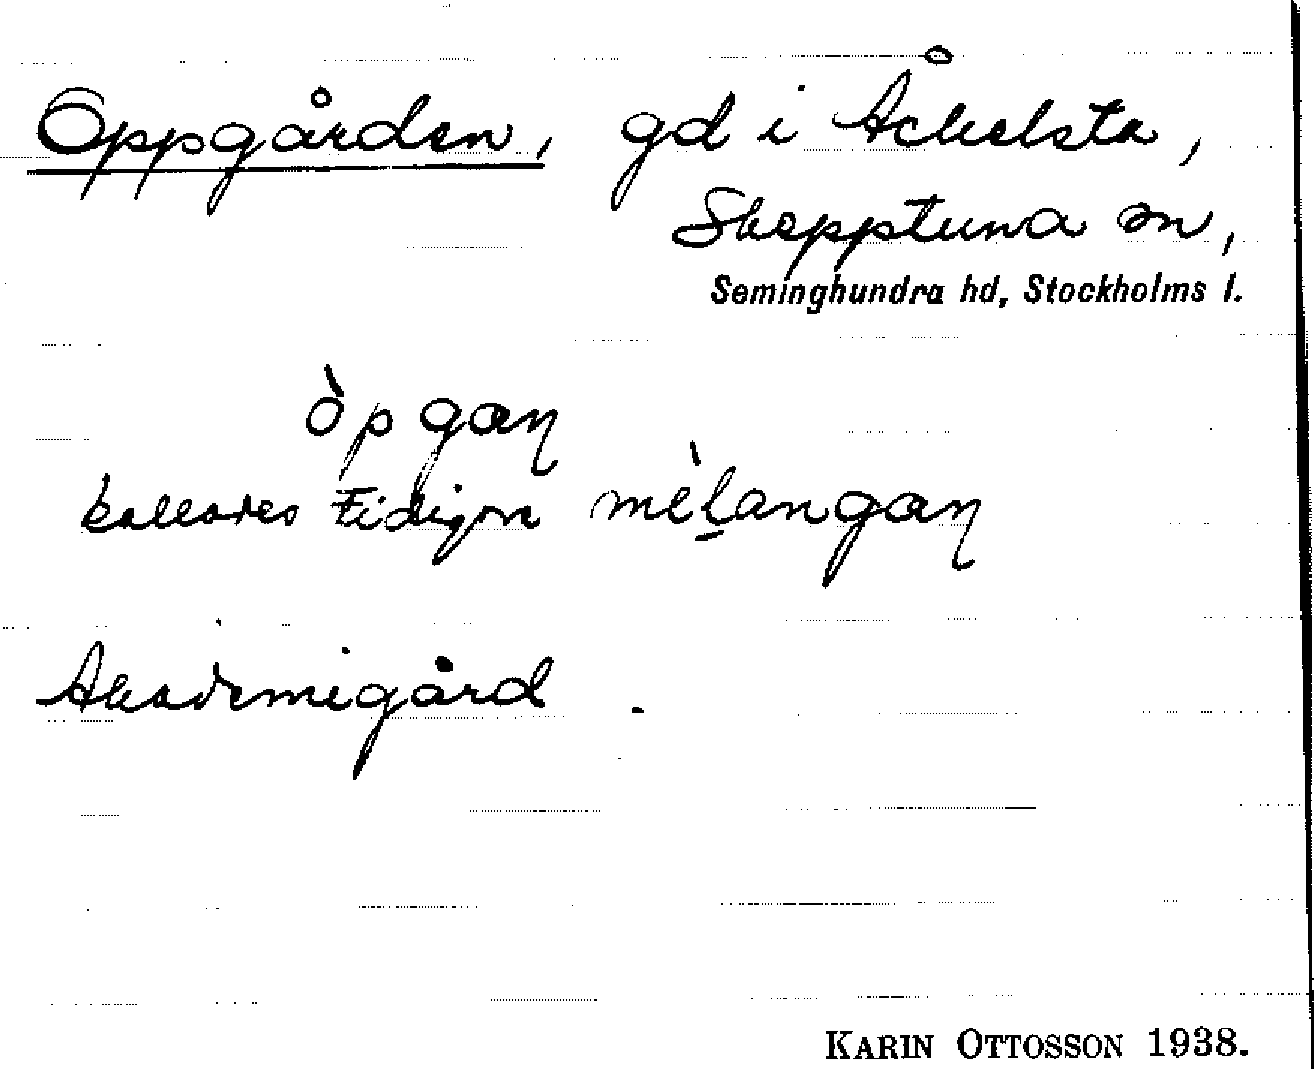 Oppgården, gd i Åckelsta,
Skepptuna sn,
Seminghundra hd, Stockholms l.
òpgaɳ
kallades tidigare mèḷangaɳ
Akademigård.
KARIN OTTOSSON 1938.